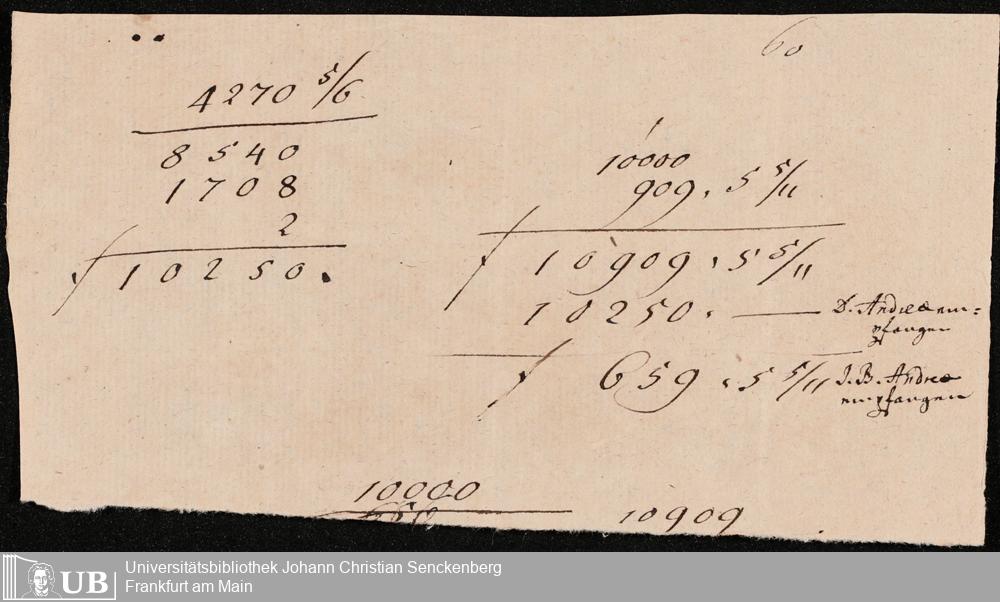 60
4270 5/6
8540
1708
2
f 10250.
10000
909. 5 5/11
f 10909. 5 5/11
10250. — D. Andreæ em=
pfangen
f 659. 5 5/11 J. B. Andreæ
empfangen
10000
10909
UB
Universitätsbibliothek Johann Christian Senckenberg
Frankfurt am Main